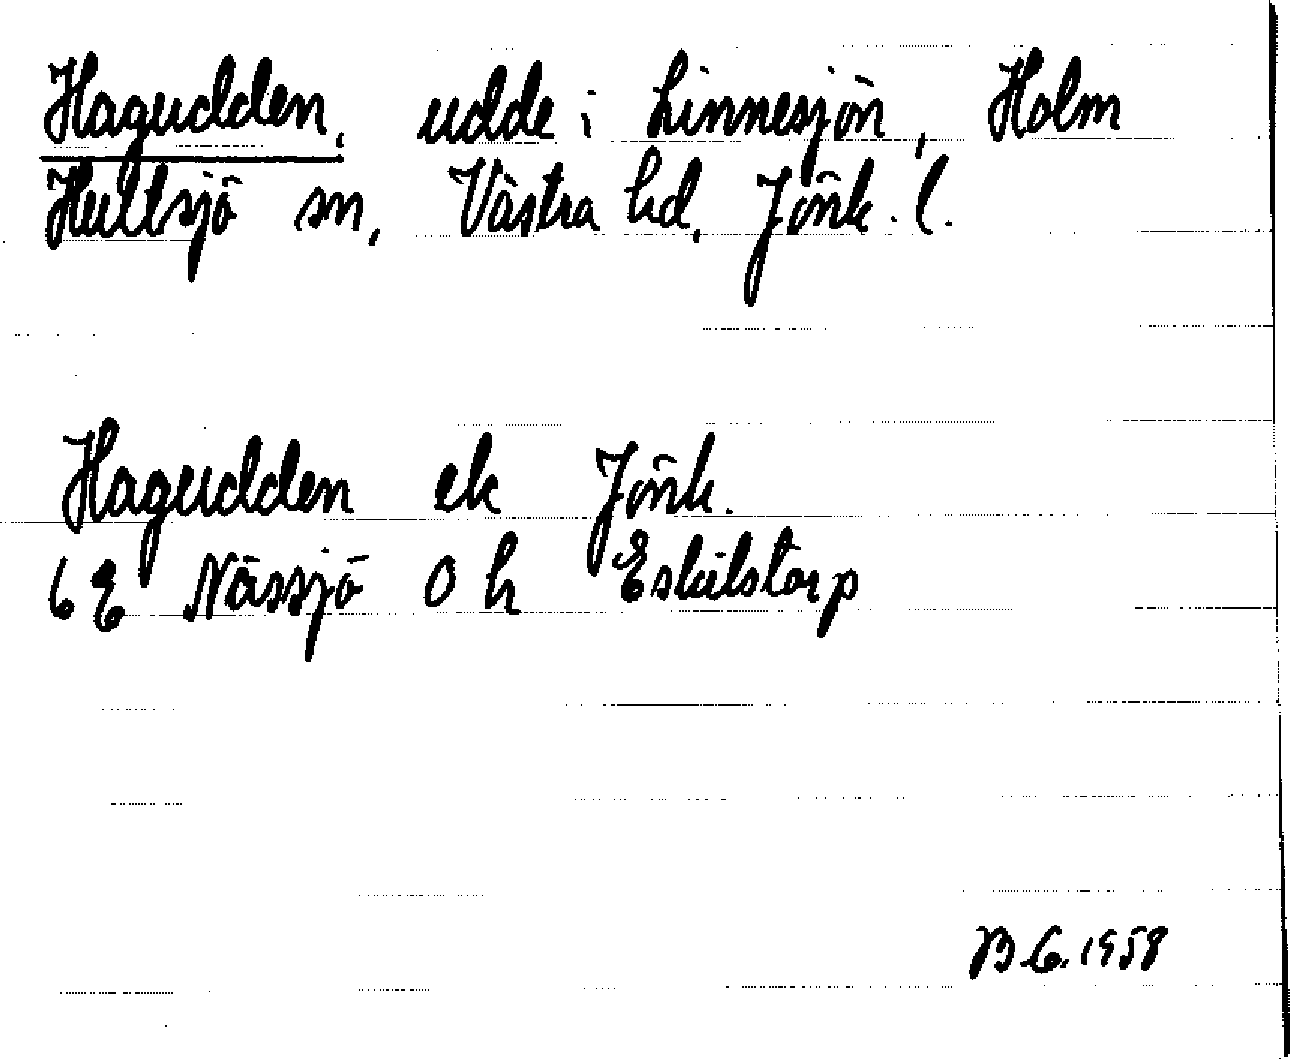 Hagudden, udde i Linnesjön, Holm
Hultsjö sn, Västra hd, Jönk. l.
Hagudden ek Jönk.
6E Nässjö 0 h Eskilstorp
B.G. 1958